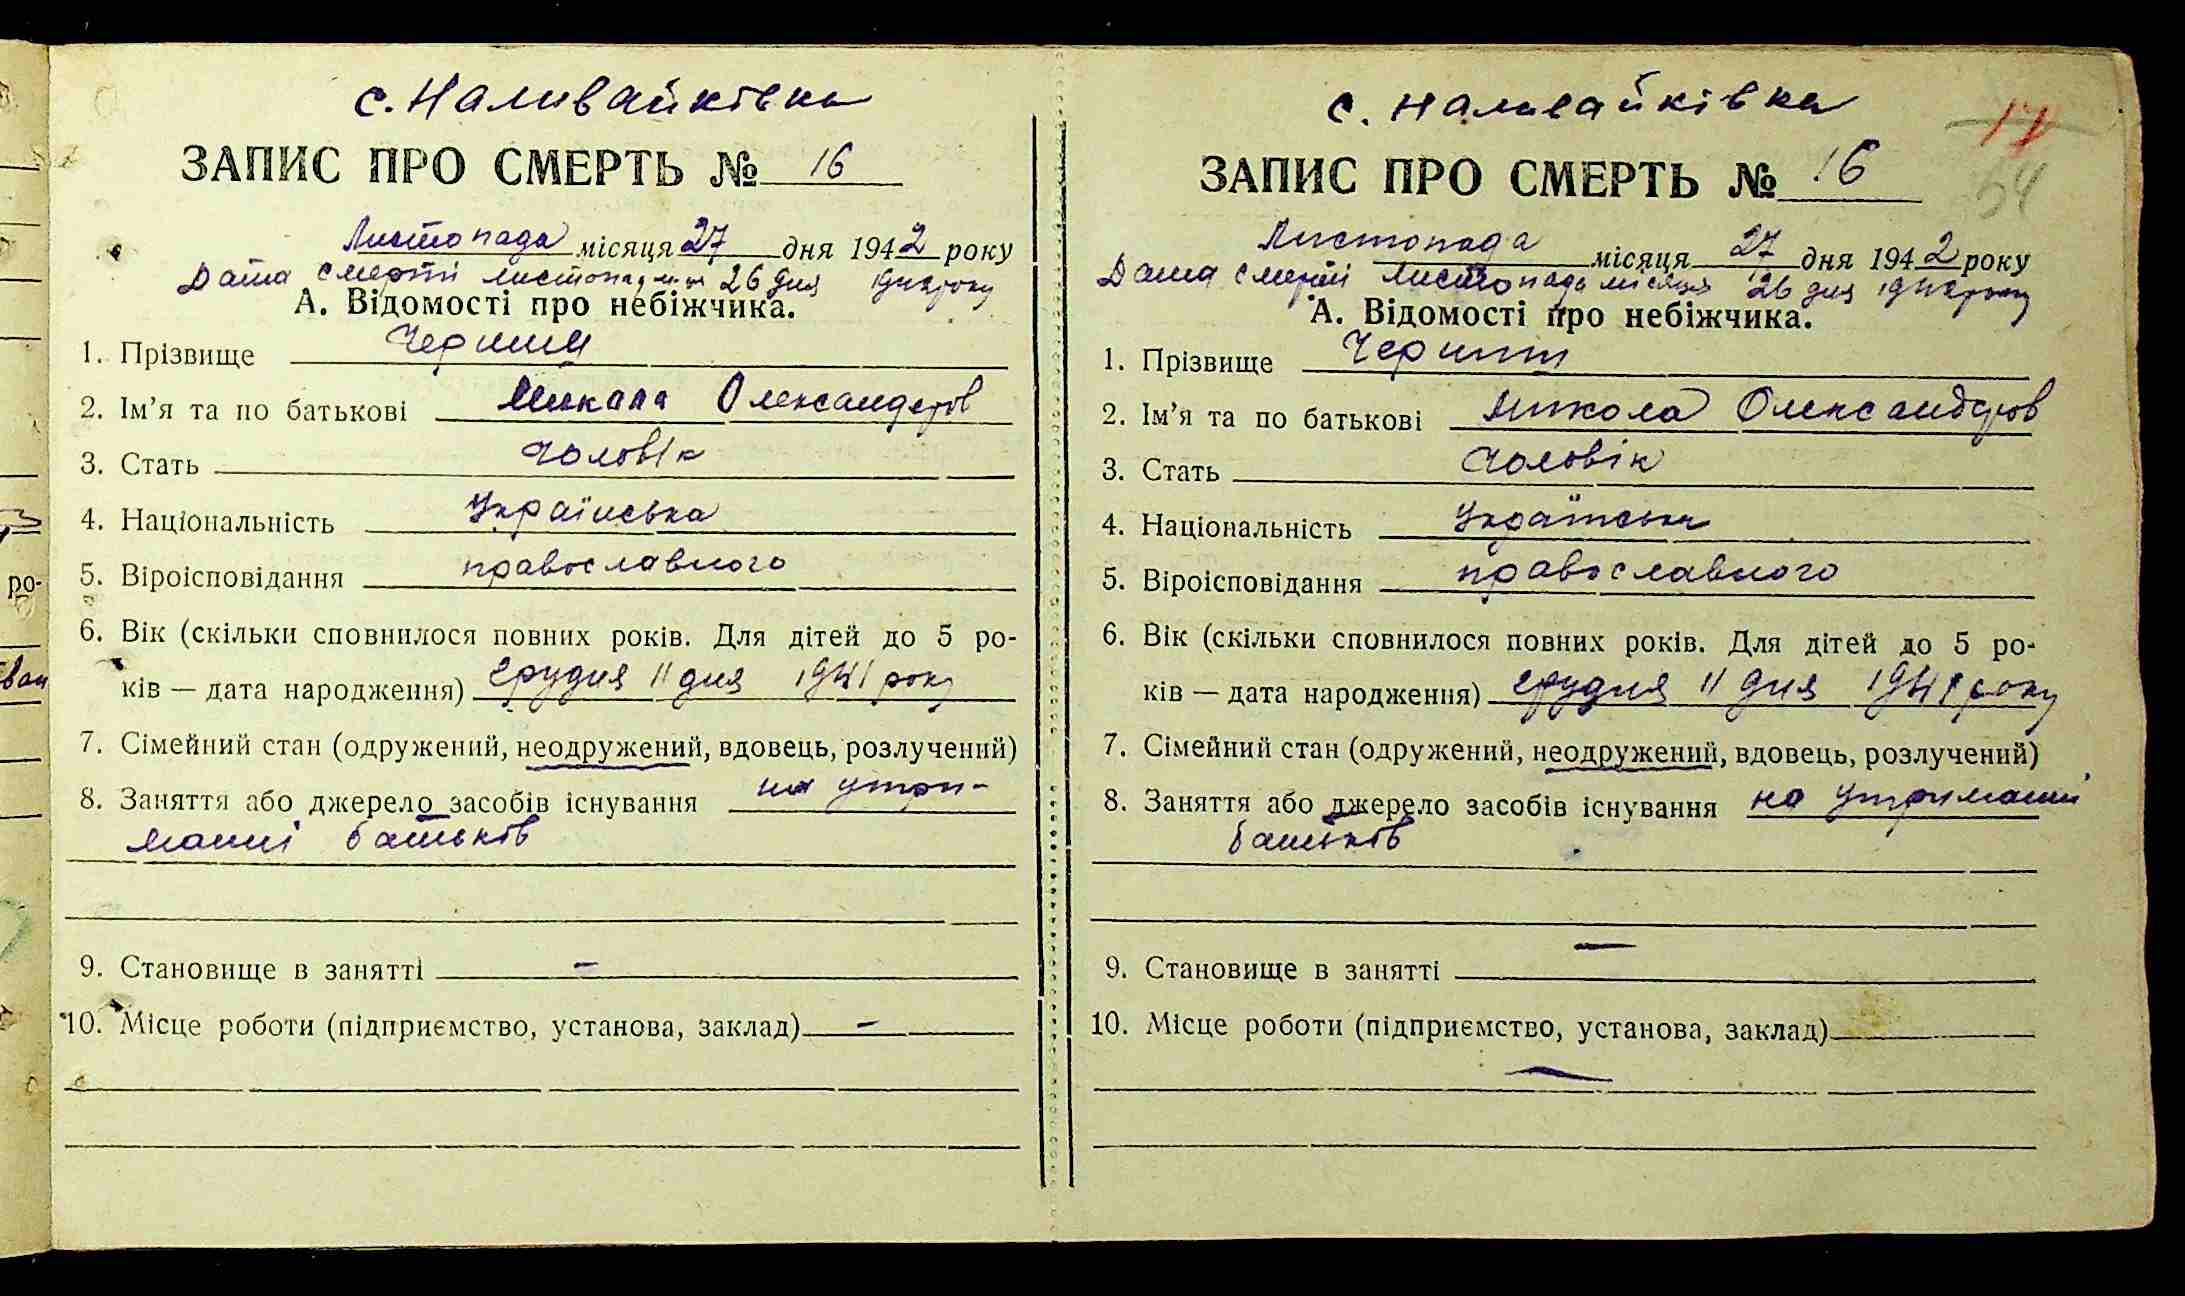 с. Наливайківка
ЗАПИС ПРО СМЕРТЬ № 16
Листопада місяця 27 дня 1942 року
Дата смерті листопад м-ця 26 дня 1942 року
А. Відомості про небіжчика.
1. Прізвище
2. Ім'я та по батькові Микола Олександров
3. Стать чоловік
4. Національність Українська
5. Віроісповідання православного
6. Вік (скільки сповнилося повних років. Для дітей до 5 ро-
ків — дата народження) грудня 11 дня 1941 року
7. Сімейний стан (одружений, неодружений, вдовець, розлучений)
8. Заняття або джерело засобів існування на утри-
манні батьків
9. Становище в занятті -
10. Місце роботи (підприємство, установа, заклад) -
с. Наливайківка
17
54
ЗАПИС ПРО СМЕРТЬ № 16
Листопада місяця 27 дня 1942 року
Дата смерті листопада місяця 26 дня 1942 року
А. Відомості про небіжчика.
1. Прізвище
2. Ім'я та по батькові Микола Олександров
3. Стать чоловік
4. Національність Українська
5. Віроісповідання православного
6. Вік (скільки сповнилося повних років. Для дітей до 5 ро-
ків — дата народження) грудня 11 дня 1941 року
7. Сімейний стан (одружений, неодружений, вдовець, розлучений)
8. Заняття або джерело засобів існування на утриманні
батьків
9. Становище в занятті —
10. Місце роботи (підприємство, установа, заклад)
—
ро-